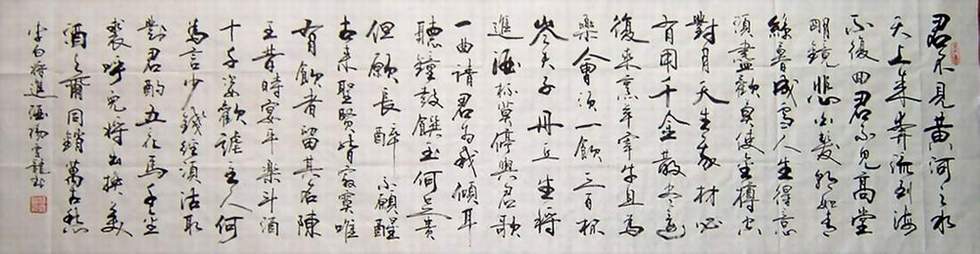 君不見黄河之水
天上来奔流到海
不復回君不見高堂
明鏡悲白髮朝如青
絲暮成雪人生得意
須盡歡莫使金樽空
對月天生我材必
有用千金散尽還
復来烹羊宰牛且為
樂會須一飲三百杯
岑夫子丹丘生将
進酒杯莫停與君歌
一曲請君為我傾耳
聽鐘鼓饌玉何足貴
但願長醉不願醒
古来聖賢皆寂寞唯
有飲者留其名陳
王昔時宴平樂斗酒
十千恣歡謔主人何
為言少錢徑須沽取
對君酌五花馬千金
裘呼兒将出換美
酒与爾同銷萬古愁
李白将進酒